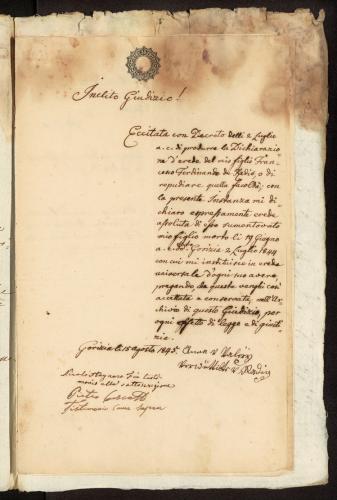 Inclito Giudizio!
Eccitata con Decreto delli 2 Luglio
a. c. di produrre la Dichiarazio
ne d'erede del mio figlio Fran
cesco Ferdinando de, o di
repudiare quella facoltà; con
la presente Instanza mi di
chiaro espressamente erede
assoluta di esso summentovato
mio figlio morto li 19 Giugno
a. c. Gorizia 2 Luglio 1844
con cui mi instituisce in erede
universale d'ogni suo avere,
pregando, che questa venghi così
accettata e conservata, nell'Ar
chivio di questo Giudizio, per
ogni effetto di legge e di giusti
zia.
Gorizia li 15 agosto 1845. v
v
monio alla sottoscrizione
Pietro
Testimonio come sopra